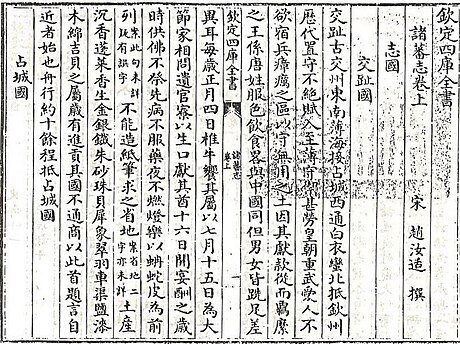 欽定四庫全書
諸蕃志卷上　宋　趙汝适　撰
志國
交趾國
交趾古交州東南薄海接占城西通白衣蠻北抵欽州
歴代置守不絶賦入至薄守禦甚勞皇朝重武愛人不
欲宿兵瘴癘之區以守無用之土因其獻款從而羈縻
之王係唐姓服色飲食畧與中國同但男女皆跣足差
欽定四庫全書　諸蕃志卷上
異耳每歲正月四日椎牛饗其屬以七月十五日為大
節家相問遺官寮以生口獻其酋十六日開宴酬之歲
時供佛不祭先病不服藥夜不燃燈樂以蚺蛇皮為前
列案此句未詳疑有誤字不能造紙筆求之省地案省地二字亦未詳土産
沉香蓬萊香生金銀鐵朱砂珠貝犀象翠羽車渠鹽漆
木綿吉貝之屬歲有進貢其國不通商以此首題言自
近者始也舟行約十餘程抵占城國
占城國